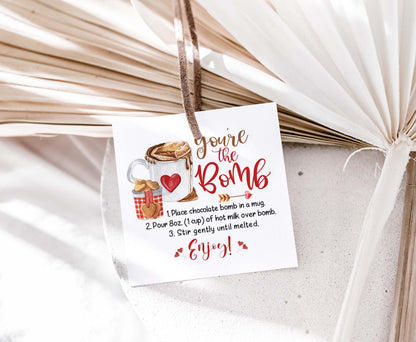 you're
the
Bomb
1. Place chocolate bomb in a mug.
2. Pour 8oz. (1 cup) of hot milk over bomb.
3. Stir gently until melted.
Enjoy!